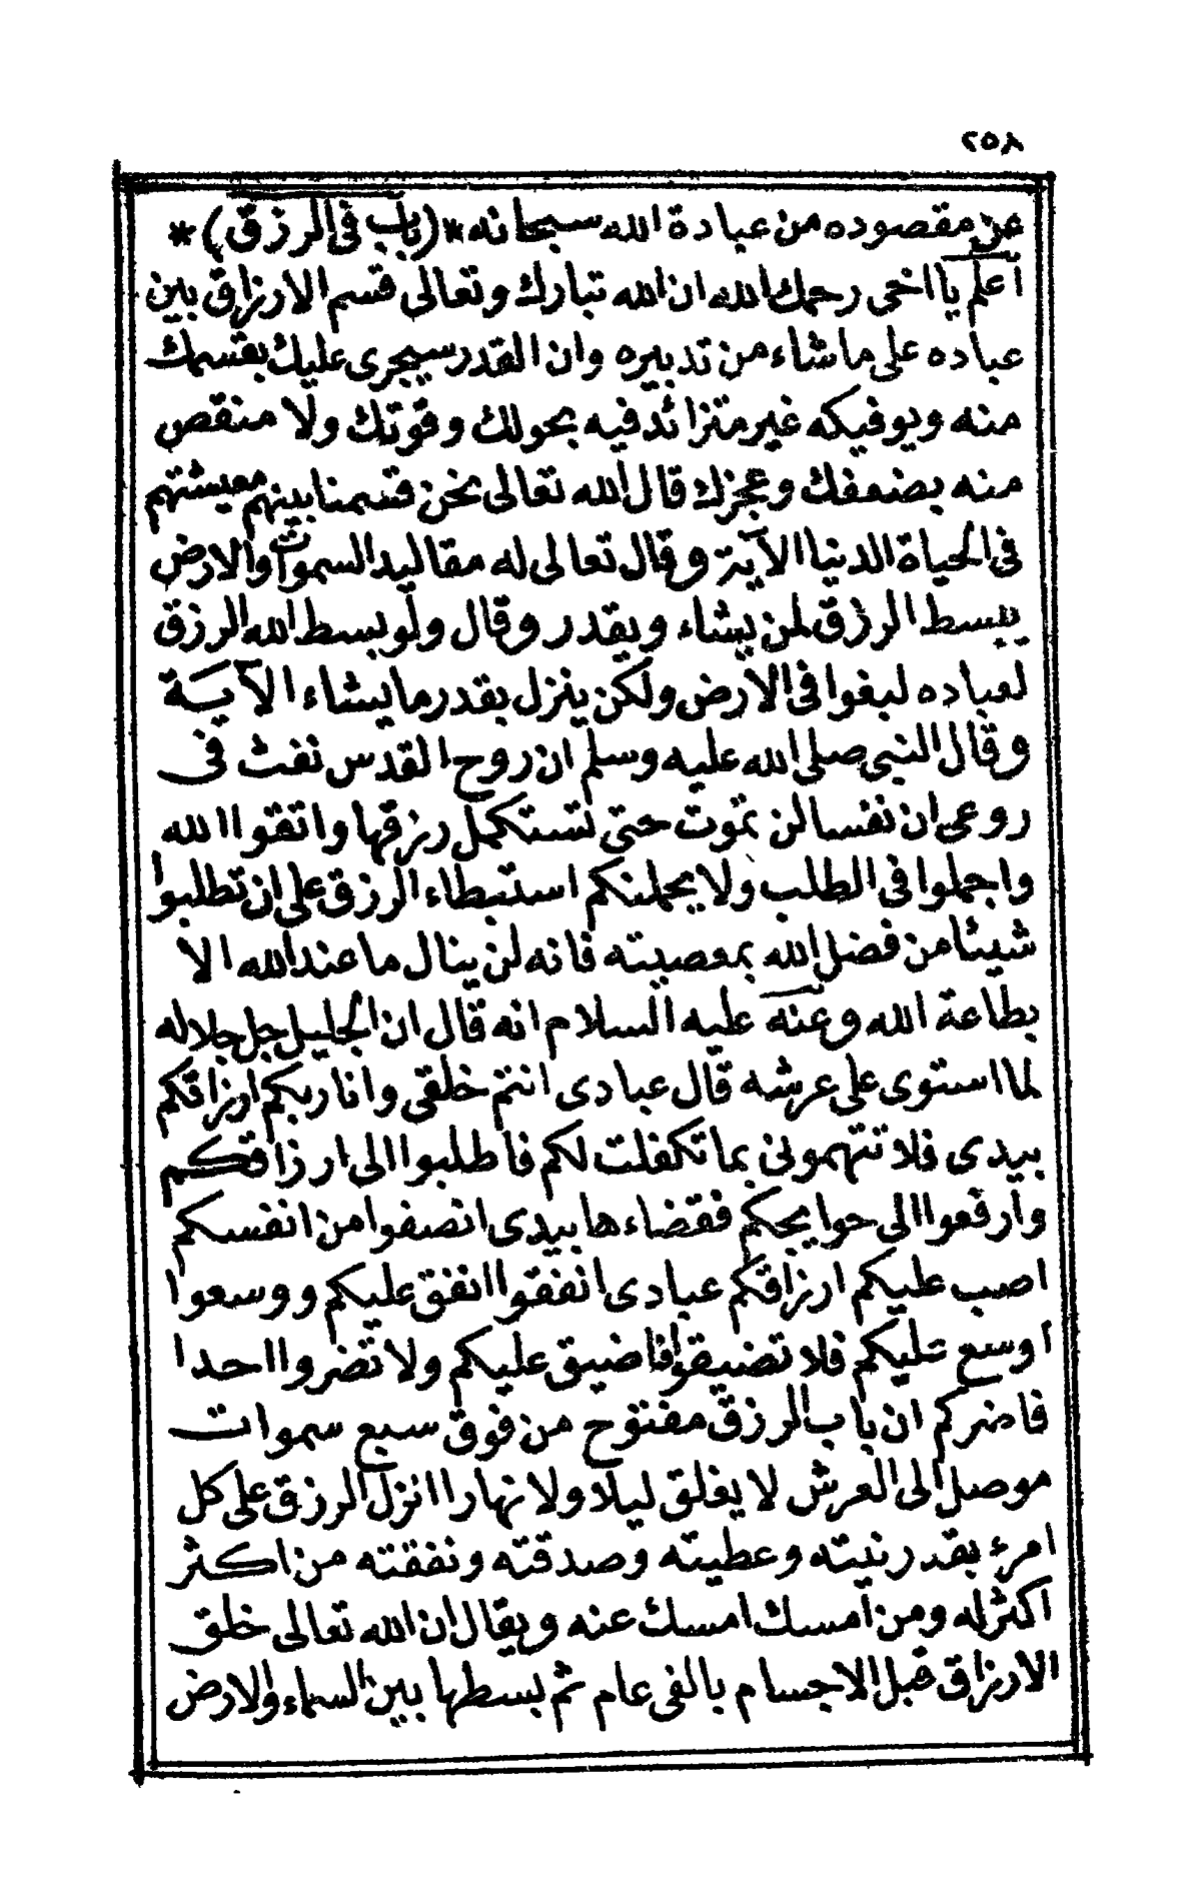 ٢٥٨
عن مقصوده من عبادة الله سبحانه *(باب فى الرزق)*
أعلم يا اخى رحمك الله ان الله تبارك وتعالى قسم الارزاق بين
عباده على ما شاء من تدبيره وان القدر سيجرى عليك بقسمك
منه ويوفيكه غير متزائد فيه بحولك وقوتك ولا منقص
منه بضعفك وعجزك قال الله تعالى نحن قسمنا بينهم معيشتهم
فى الحياة الدنيا الآية وقال تعالى له مقاليد السموات والارض
يبسط الرزق لمن يشاء ويقدر وقال ولو بسط الله الرزق
لعباده لبغوا فى الارض ولكن ينزل بقدر ما يشاء الآية
وقال النبى صلى الله عليه وسلم ان روح القدس نفث فى
روعى ان نفسا لن تموت حتى تستكمل رزقها واتقوا الله
واجملوا فى الطلب ولا يحملنكم استبطاء الرزق على ان تطلبوا
شيئا من فضل الله بمعصيته فانه لن ينال ما عند الله الا
بطاعة الله وعنه عليه السلام انه قال ان الجليل جل جلاله
لما استوى على عرشه قال عبادى انتم خلقى وانا ربكم ارزاقكم
بيدى فلا تتهمونى بما تكفلت لكم فاطلبوا الى ارزاقكم
وارفعوا الى حوايجكم فقضاءها بيدى انصفوا من انفسكم
اصب عليكم ارزاقكم عبادى انفقوا انفق عليكم ووسعوا
اوسع عليكم فلا تضيقوا فاضيق عليكم ولا تضروا احدا
فاضركم ان باب الرزق مفتوح من فوق سبع سموات
موصل الى العرش لا يغلق ليلا ولا نهارا انزل الرزق على كل
امرء بقدر نيته وعطيته وصدقته ونفقته من اكثر
اكثر له ومن امسك امسك عنه ويقال ان الله تعالى خلق
الارزاق قبل الاجسام بالفى عام ثم بسطها بين السماء والارض